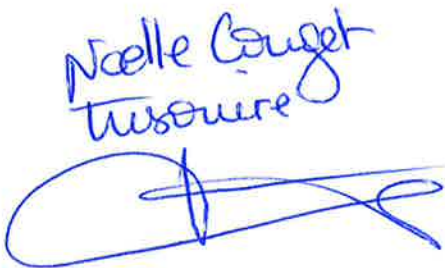 Noelle Couget
Trésorière